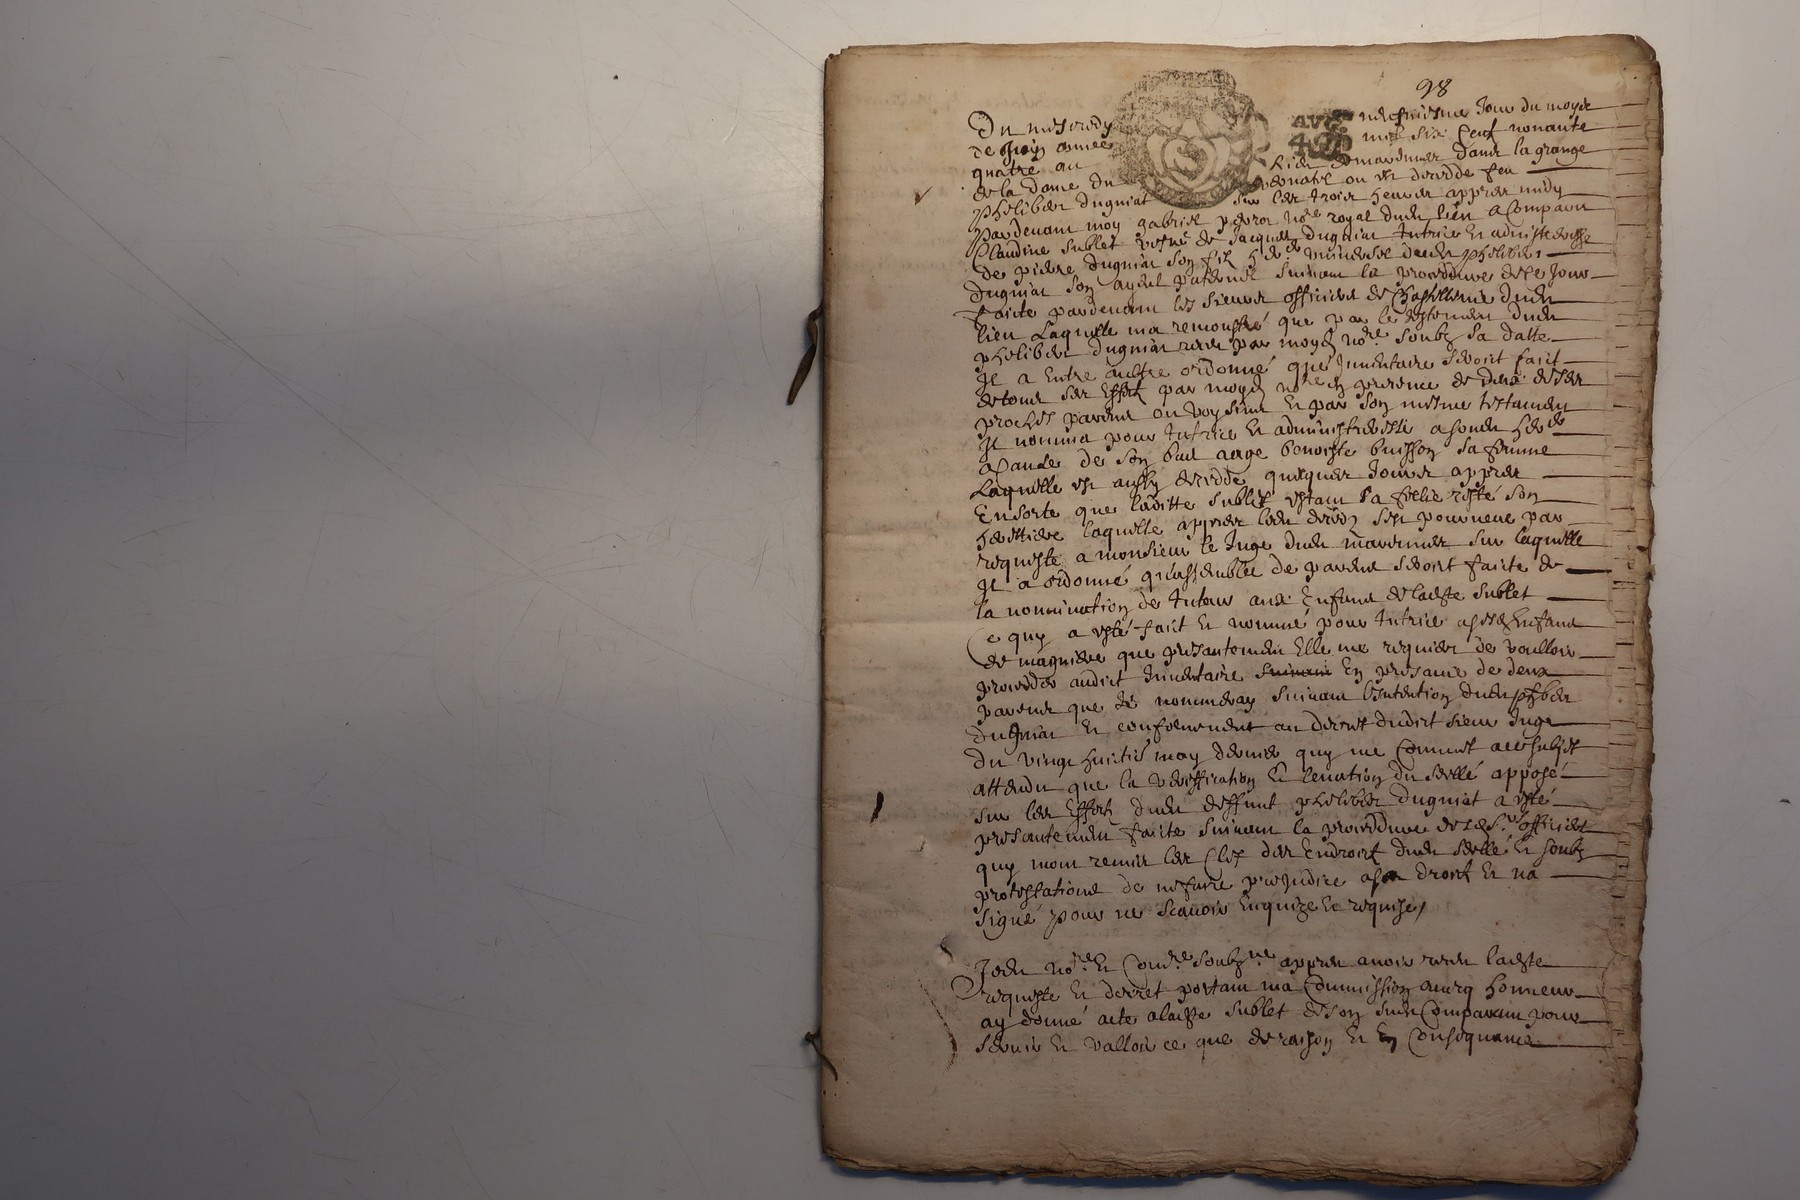 98
Du mercredy neufviesme Jour du moys
de Juin année mil six Cent nonante
quatre au lieu de maronnier dans la grange
de la dame du ou est decedde feu
phelibert duguiat sur les trois heures appres midy
Pardevant moy gabriel no.re royal dudit lieu a Comparu
Claudine Sublet vefve de Jacques duguiat tutrice et administreresse
de pierre duguiat son fil universel dudit phelibert
duguiat son ayeul paternel suivant la proceddure de ce Jour
faicte pardevant les sieurs officiers de Chastellenie dudit
lieu Laquelle ma remonstré que par le testement dudit
phelibert duguiat receu par moyd no.re soubz sa datte
Il a Entre aultre ordonné que Inventaire seroit fait
de tous ses Effect par moyd no.re en presence de deux de ses
proches parens ou voysins et par son mesme testament
Il nomma pour tutrice et administreresse a sondit
a cause de son bas aage benoiste buisson sa femme
Laquelle est aussy decedde quelques Jours appres
Ensorte que laditte Sublet estant sa fillie resté son
heritiere laquelle appres ledit deced sest pourveue par
requeste a monsieur le Juge dudit maronnier sur laquelle
Il a ordonné qu'assemblee de parens seroit faicte de
la nomination de tuteur aux Enfans de ladite Sublet
Ce quy a esté fait et nommé pour tutrice a sesd Enfans
de magniere que presantement Elle me requiert de voulloir
procedder audict Inventaire suivant En presance de deux
parens que Je nommeray suivant l'intention dudit phbert
duguiat et conformement au decret dudict sieur Juge
du vingt huictie may dernier quy me Commet a ce subject
attendu que la veriffication et levation du scellé apposé
sur les Effect dudit deffunt phelibert duguiat a esté
presantement faicte suivant la proceddure desd s.rs officiers
quy mont remis les Clef des Endroict dudit scellé et soubz
protestations de ne faire prejudice a ses droict et na
signé pour ne scavoir Enquize et requise,
Jedit no.re et Com.re soubz.ne appres avoir receu ladite
requeste et decret portant ma Commission avecq honneur
ay donné acte a ladite Sublet de son susdit Comparant pour
servir et valloir ce que de raison et En Consequance